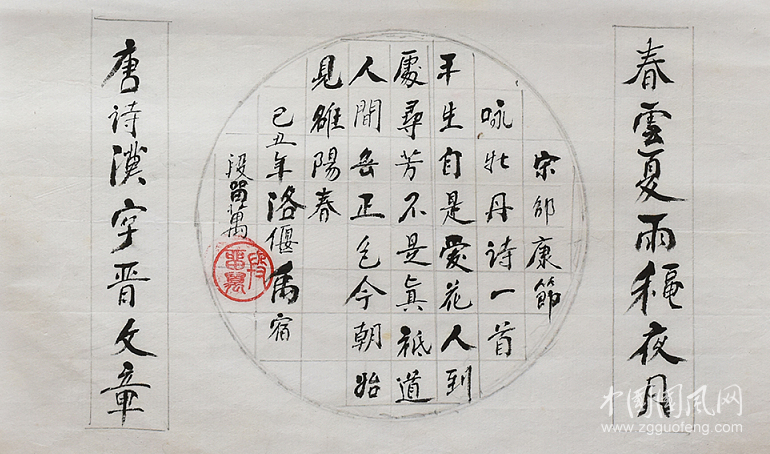 春雲夏雨穐夜月
宋邵康節
咏牡丹诗一首
平生自是愛花人到
處尋芳不是真祗道
人間無正色今朝始
見雒陽春
己丑年洛偃禹宿
段留萬
唐诗漢字晋文章
中国国风网
www.zgguofeng.com